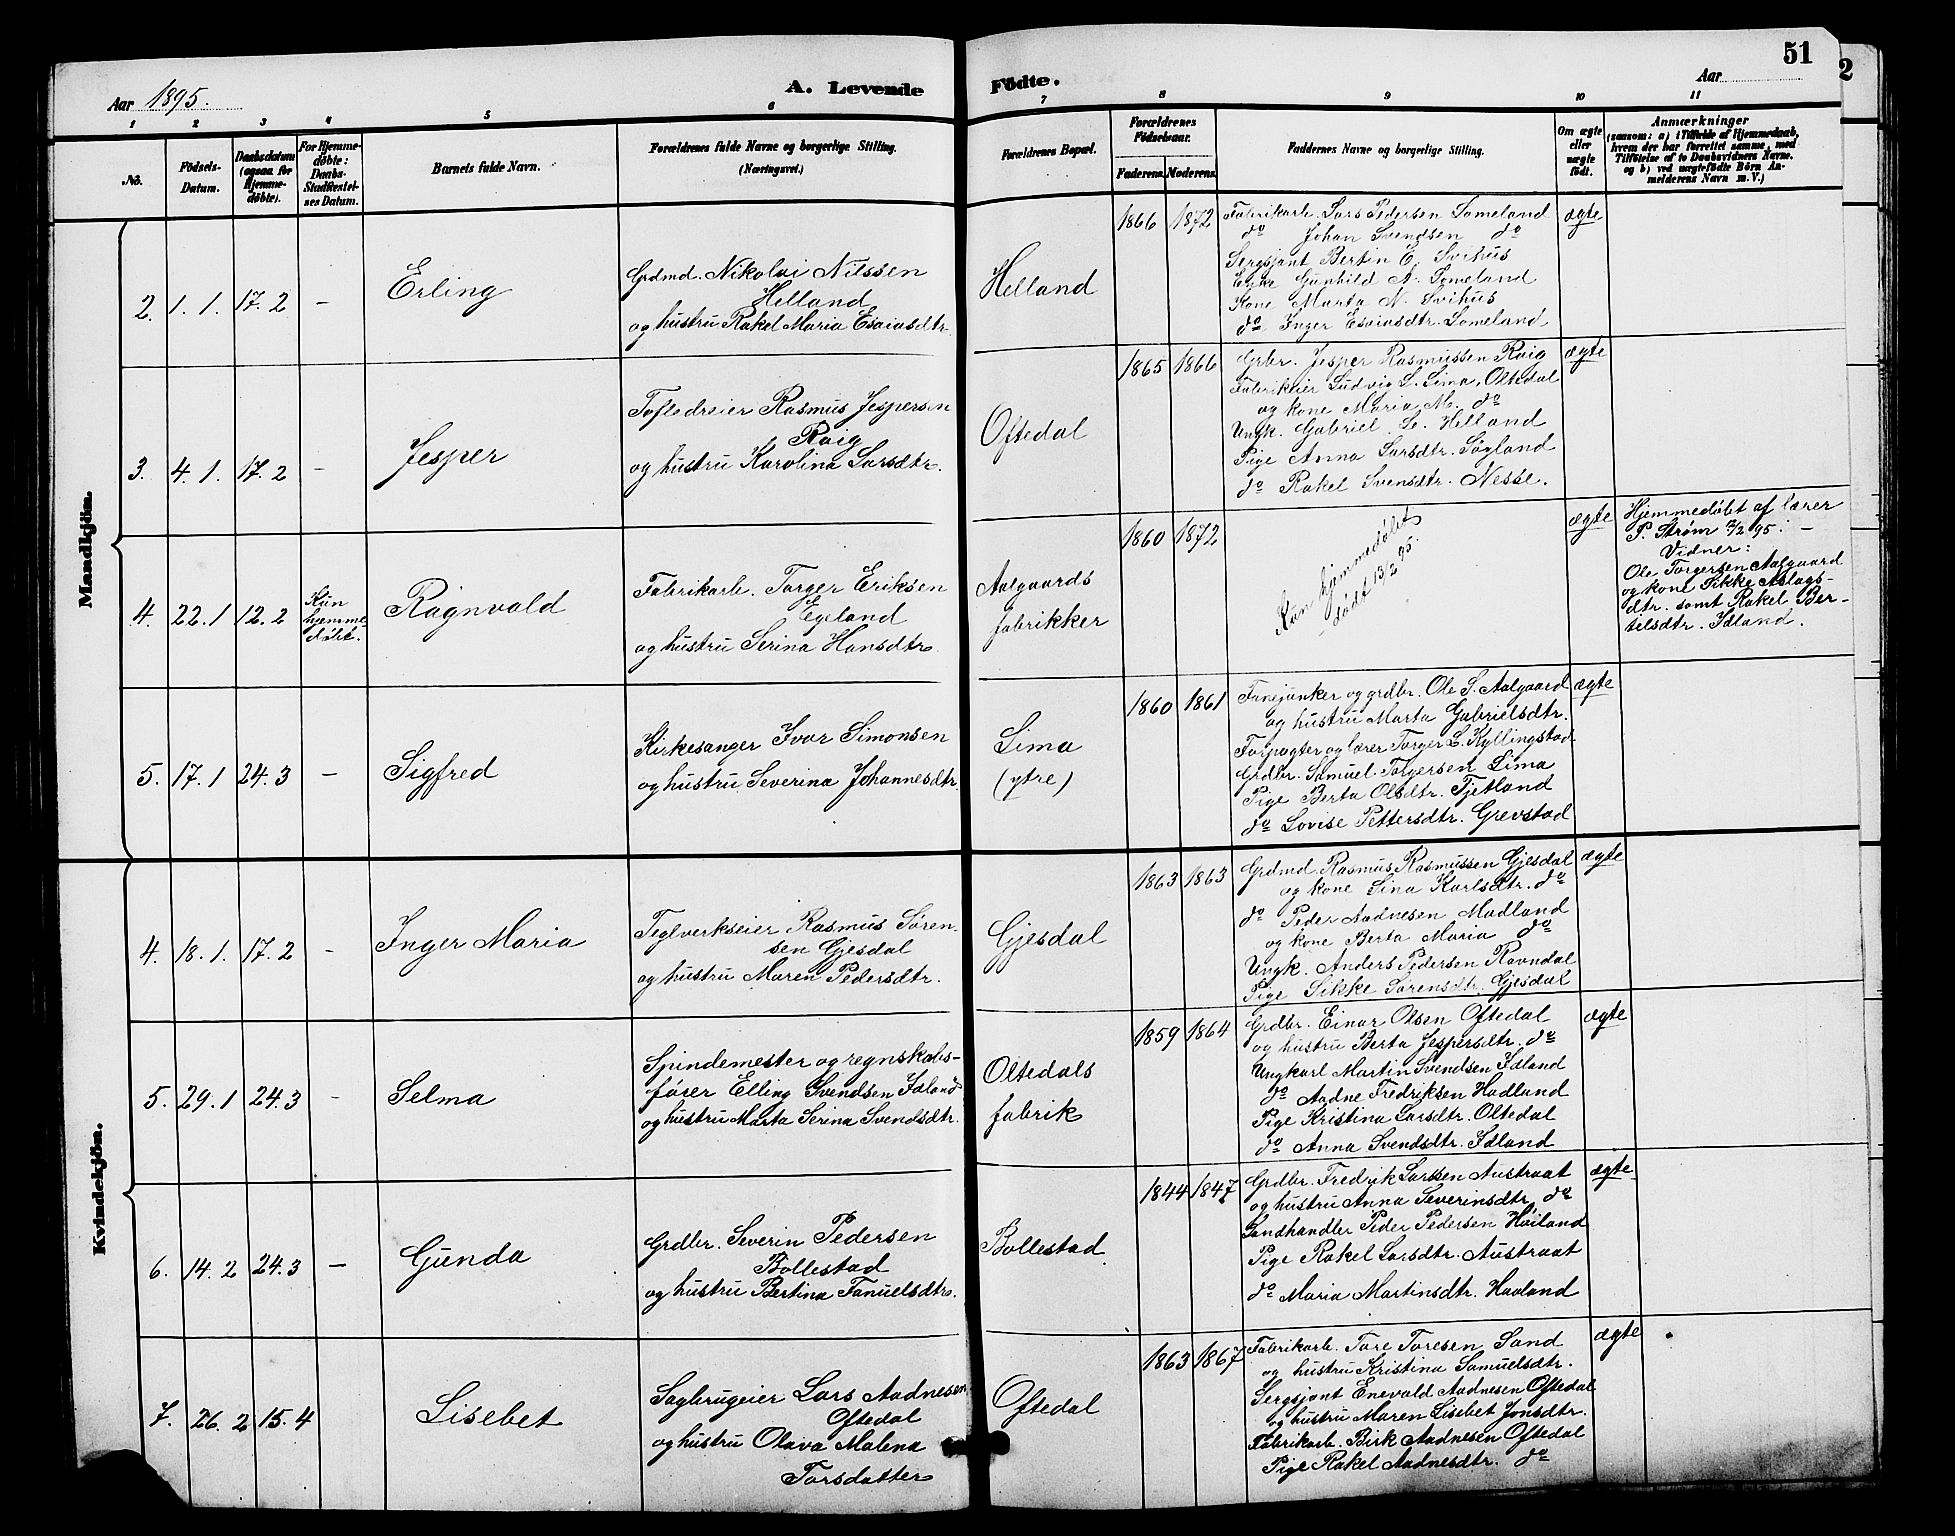 51
2
Aar 1895.
A. Levende Födte.
Aar
1 2 3 4 5 6 7 8 9 10 11
No.
Födsels-Datum.
Daabsdatum (ogsaa for Hjemmedöbte).
For Hjemmedöbte: Daabs-Stadfæstelses Datum.
Barnets fulde Navn.
Forældrenes fulde Navne og borgerlige Stilling. (Næringsvei.)
Forældrenes Bopæl.
Forældrenes Födselsaar.
Faderens. Moderens.
Faddernes Navne og borgerlige Stilling.
Om ægte eller uægte födt.
Anmærkninger
(saasom: a) i Tilfælde af Hjemmedaab, hvem der har forrettet samme, med Tilföielse af to Daabsvidners Navne. og b) ved uægtefödte Börn Anmelderens Navn m. V.)
Mandkjön.
2. 1. 1. 17. 2 – Erling
Grdmd. Nikolai Nilssen
Helland
og hustru Rakel Maria Esaiasdtr.
Helland
1866 1872
Fabrikarb. Lars Pedersen Lomeland
do Johan Svendsen do
Sergsjant Bertin E. Svihus
Enke Gunhild A. Lomeland
Kone Marta N. Svihus
do Inger Esaiasdtr. Lomeland
ægte
3. 4. 1. 17. 2 – Jesper
Rasmus Jespersen
Roig
og hustru Karolina Larsdtr.
Oftedal
1865 1866
Grbr. Jesper Rasmussen Roig
Fabrikeier Ludvig L. Lima, Oltedal
og kone Maria M. do
Ungk. Gabriel L. Helland
Pige Anna Larsdtr. Søyland
do Rakel Svensdtr. Nesse.
ægte
4. 22. 1 12. 2 Kun hjemmedøbt. Ragnvald
Fabrikarb. Torger Eriksen
Egeland
og hustru Serina Hansdtr.
Aalgaards
fabrikker
1860 1872
Kun hjemmedøbt
– død 13/2 95.
ægte
Hjemmedøbt af lærer
P. Strøm 12/2 95. –
Vidner:
Ole Torgersen Aalgaard
og kone Sikke Aslags-
dtr. samt Rakel Ber-
telsdtr. Idland.
5. 17. 1 24. 3 – Sigfred
Kirkesanger Ivar Simonsen
og hustru Severina Johannesdtr.
Lima
(ytre)
1860 1861
Fanejunker og grdbr. Ole S. Aalgaard
og hustru Marta Gabrielsdtr.
Forpagter og lærer Torger L. Kyllingstad
Grdbr. Samuel Torgersen Lima
Pige Berta Olsdtr. Tjetland
do Lovise Pettersdtr. Grevstad
ægte
Kvindekjön.
4. 18. 1. 17. 2 – Inger Maria
Teglverkseier Rasmus Søren-
sen Gjesdal
og hustru Maren Pedersdtr.
Gjesdal
1863 1863
Grdmd. Rasmus Rasmussen Gjesdal
og kone Sina Karlsdtr. do
do Peder Aadnesen Madland
og kone Berta Maria do
Ungk. Anders Pedersen Ravndal
Pige Sikke Sørensdtr. Gjesdal
ægte
5. 29. 1 24. 3 – Selma
Spindemester og regnskabs-
fører Elling Svendsen Idland
og hustru Marta Serina Svendsdtr.
Oltedals
fabrik
1859 1864
Grdbr. Einar Olsen Oftedal
og hustru Berta Jespersdtr. do
Ungkarl Martin Svendsen Idland
do Aadne Fredriksen Hadland
Pige Kristina Larsdtr. Oltedal
do Anna Svendsdtr. Idland
ægte
6. 14. 2 24. 3 – Gunda
Grdbr. Severin Pedersen
Bollestad
og hustru Bertina Fanuelsdtr.
Bollestad
1844 1847
Grdbr. Fredrik Larssen Austraat
og hustru Anna Severinsdtr. do
Landhandler Peder Pedersen Høiland
Pige Rakel Larsdtr. Austraat
do Maria Martinsdtr. Haaland
ægte
7. 26. 2 15. 4 Lisebet
Sagbrugeier Lars Aadnesen
Oftedal
og hustru Olava Malena
Torsdatter
Oftedal
1863 1867
Fabrikarb. Tore Toresen Sand
og hustru Kristina Samuelsdtr.
Sergsjant Enevald Aadnesen Oftedal
og hustru Maren Lisebet Jonsdtr.
Fabrikarb. Birk Aadnesen Oftedal
Pige Rakel Aadnesdtr. do
ægte